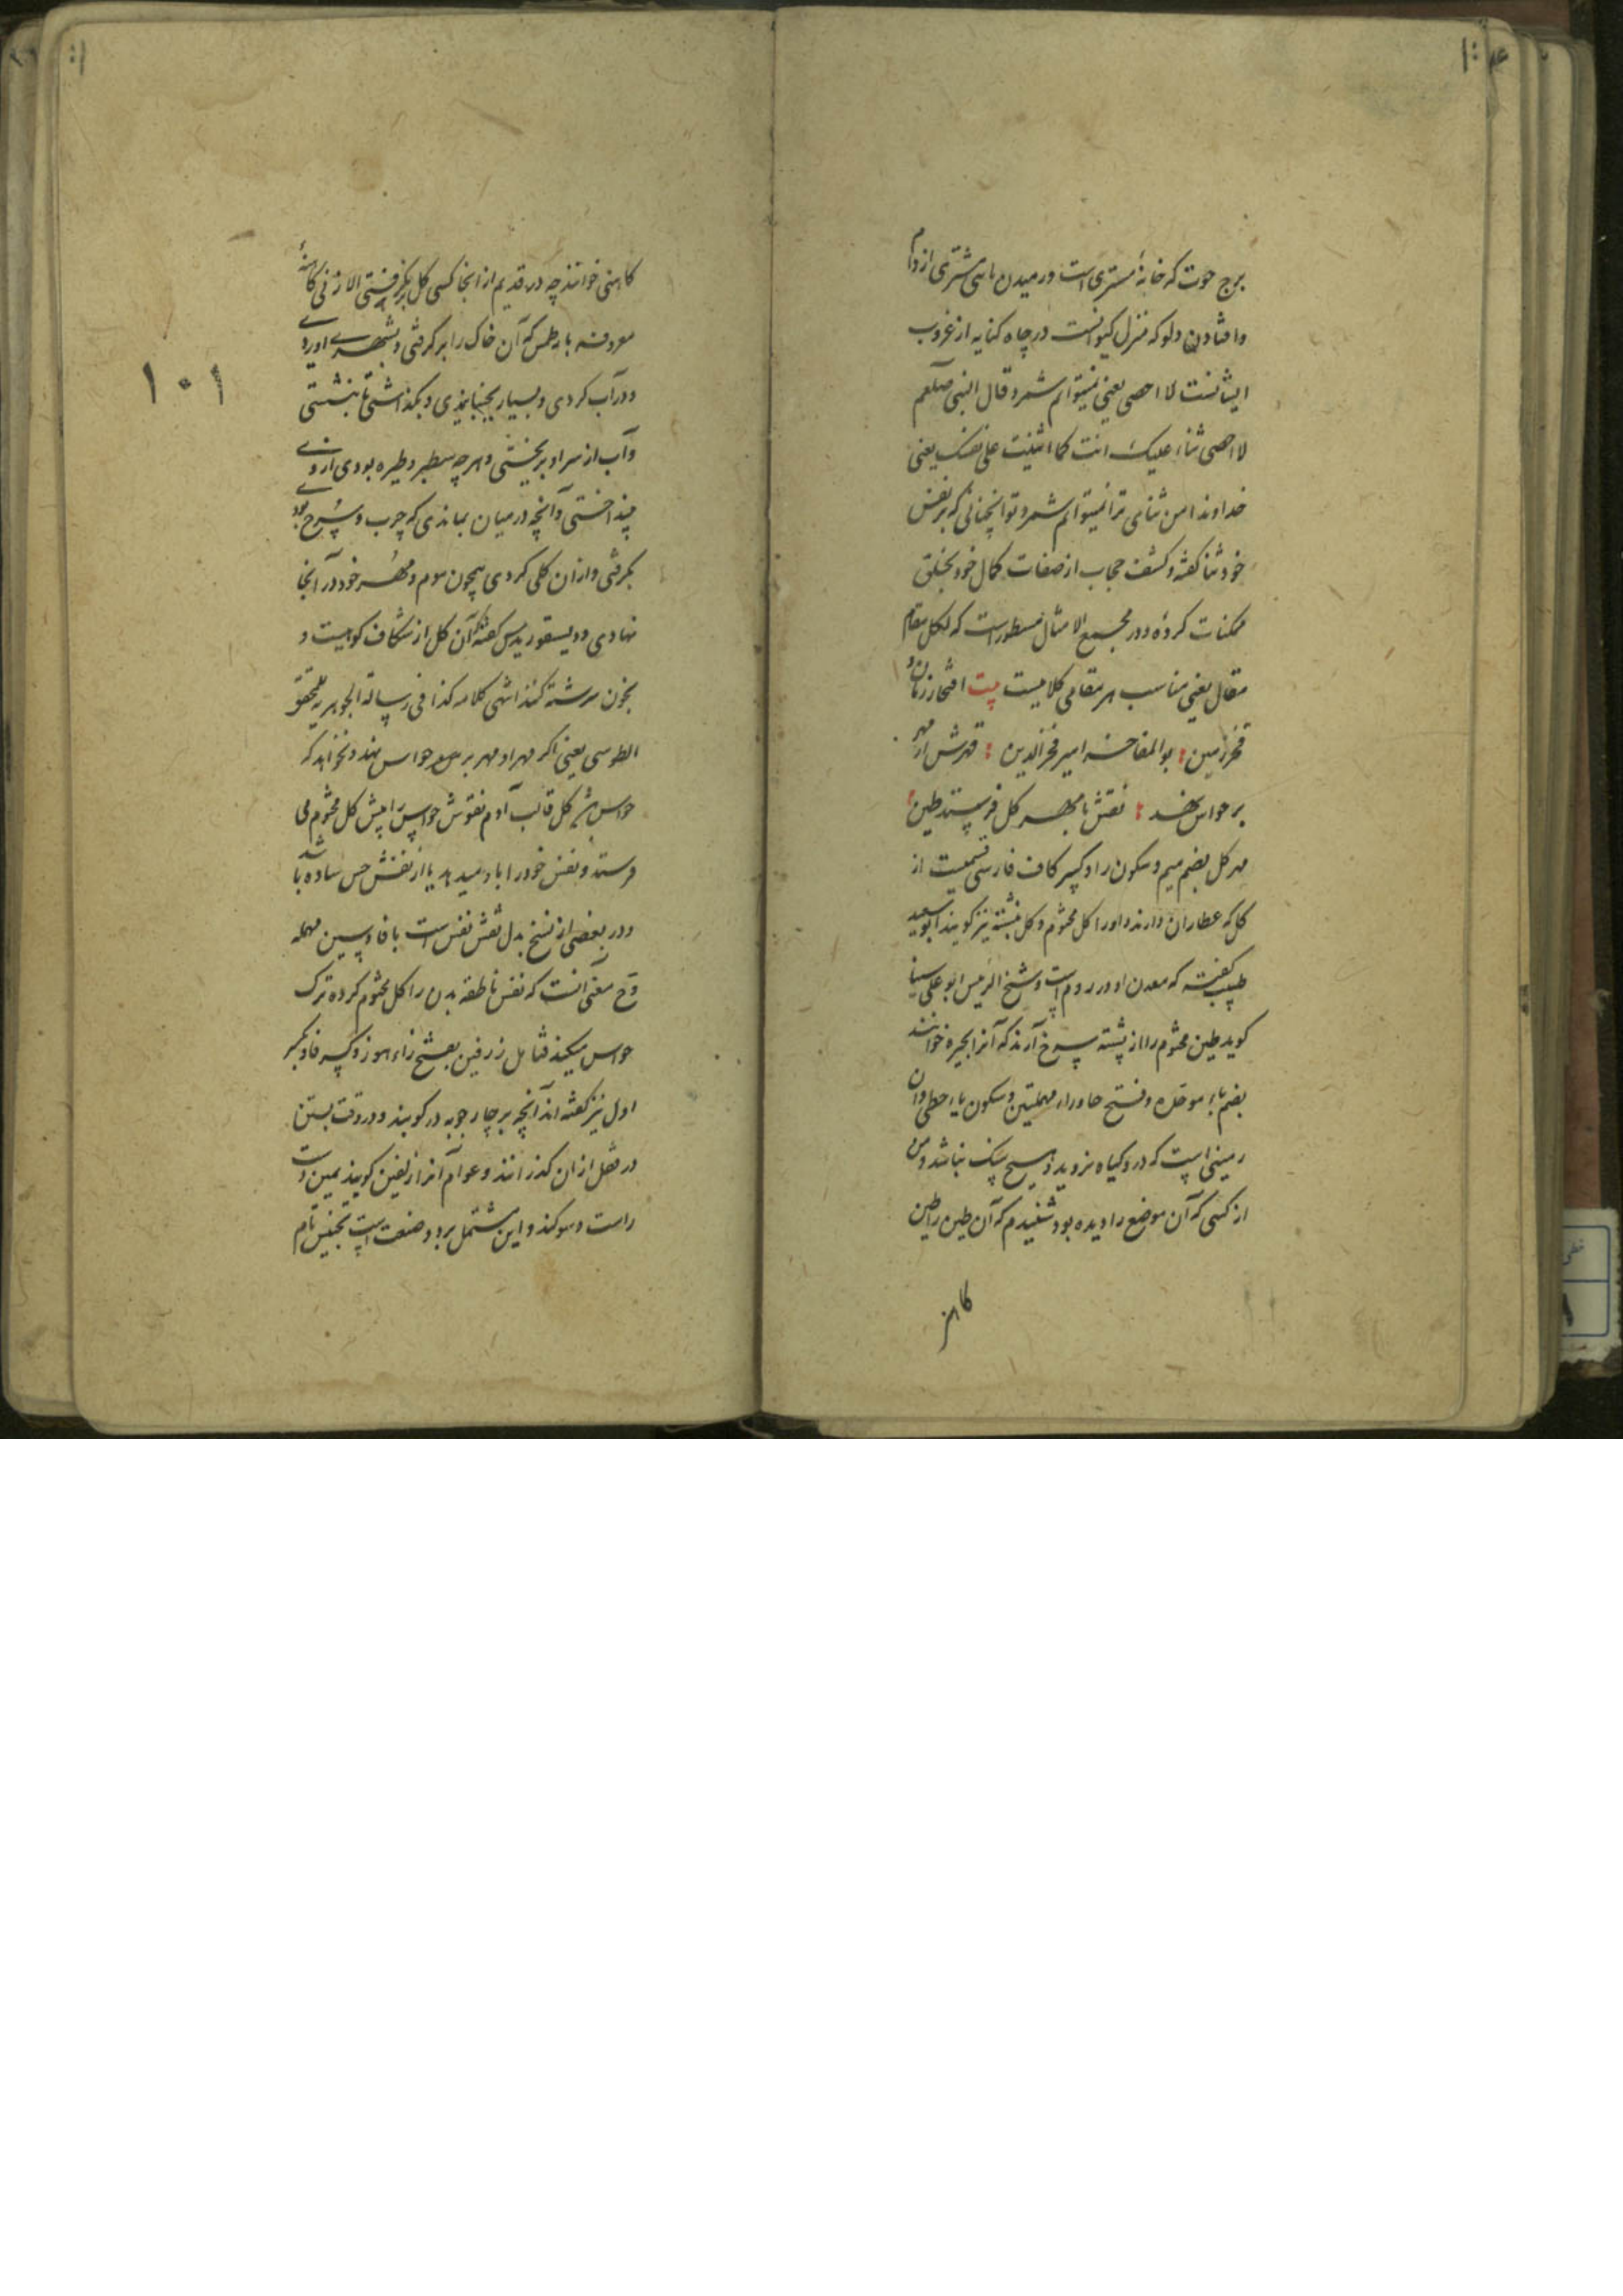 برج حوت که خانهٔ مشتری است و رمیدن ماهی مشتری از دام
وافتادن دلو که منزل کیوانست در چاه کنایه از غروب
ایشانست لا احصی یعنی نمیتوانم شمرد قال النبی صلعم
لا احصی ثناء علیک انت کما اثنیت علی نفسک یعنی
خداوندا من ثنای ترا نمیتوانم شمرد تو آنچنانی که بر نفس
خود ثنا گفتهٔ و کشف حجاب از صفات کمال خود بخلق
ممکنات کردهٔ و در مجمع الامثال مسطور است که لکل مقام
مقال یعنی مناسب هر مقامی کلامیست بیت افتخار زمان و
فخر زمین : بو المفاخر امیر فخرالدین : قهرش ار مهر
بر حواس نهد : نقش با مهر گل فرستد طین :
مهر گل بضم میم و سکون را و کسر کاف فارسی قسمیست از
گل که عطاران دارند و او را گل مختوم و گل نبشته نیز گویند ابو سعید
طبیب گفته که معدن او در روم است و شیخ الرئیس ابو علی سینا
گوید طین مختوم را از پشته سرخ آرند که آنرا بحیره خوانند
بضم باء موحده و فتح حا و راء مهملتین و سکون یاء حطی و آن
زمینی است که در و گیاه نروید و هیچ سنگ نباشد و من
از کسی که آن موضع را دیده بود شنیدم که آن طین را طین
کاهن
۱۰۱
کاهنی خوانند چه در قدیم از انجا کسی گل بر نگرفتی الا زنی کاهنهٔ
معروفه بارطمس که آن خاک را بر گرفتی و بشهر اوردی
و در آب کردی و بسیار بجنبانیدی و بگذاشتی تا بنشستی
و آب از سر او بریختی و هر چه سطبر و طیره بودی از وی
بینداختی و آنچه در میان بماندی که چرب و سرخ بود
بگرفتی و ازان گلی کردی همچون موم و مهر خود در آنجا
نهادی و دیسقوریدس گفته که آن گل از شکاف کوهیست و
بخون سرشته کنند انتهی کلامه کذا فی رسالة الجوهریه للمحقق
الطوسی یعنی اگر مهر او مهر بر حواس نهد و نخواهد که
حواس گل قالب آدم نقوش حواس را پیش گل مختوم می
فرستد و نفس خود را باو میدهد یا از نقش حس ساده باشد
و در بعضی از نسخ بدل نقش نفس است با فا و سین مهمله
و ح معنی آنست که نفس ناطقه بدن را گل مختوم کرده ترک
حواس میکند زرفین بفتح زاء هوز و کسر فا و بکسر
اول نیز گفته اند آنچه بر چارچوبه در کوبند و در وقت بستن
در قفل ازان گذرانند و عوام آنرا زلفین گویند یمین دست
راست و سوگند و این مشتمل بر دو صنعت است تجنیس تام